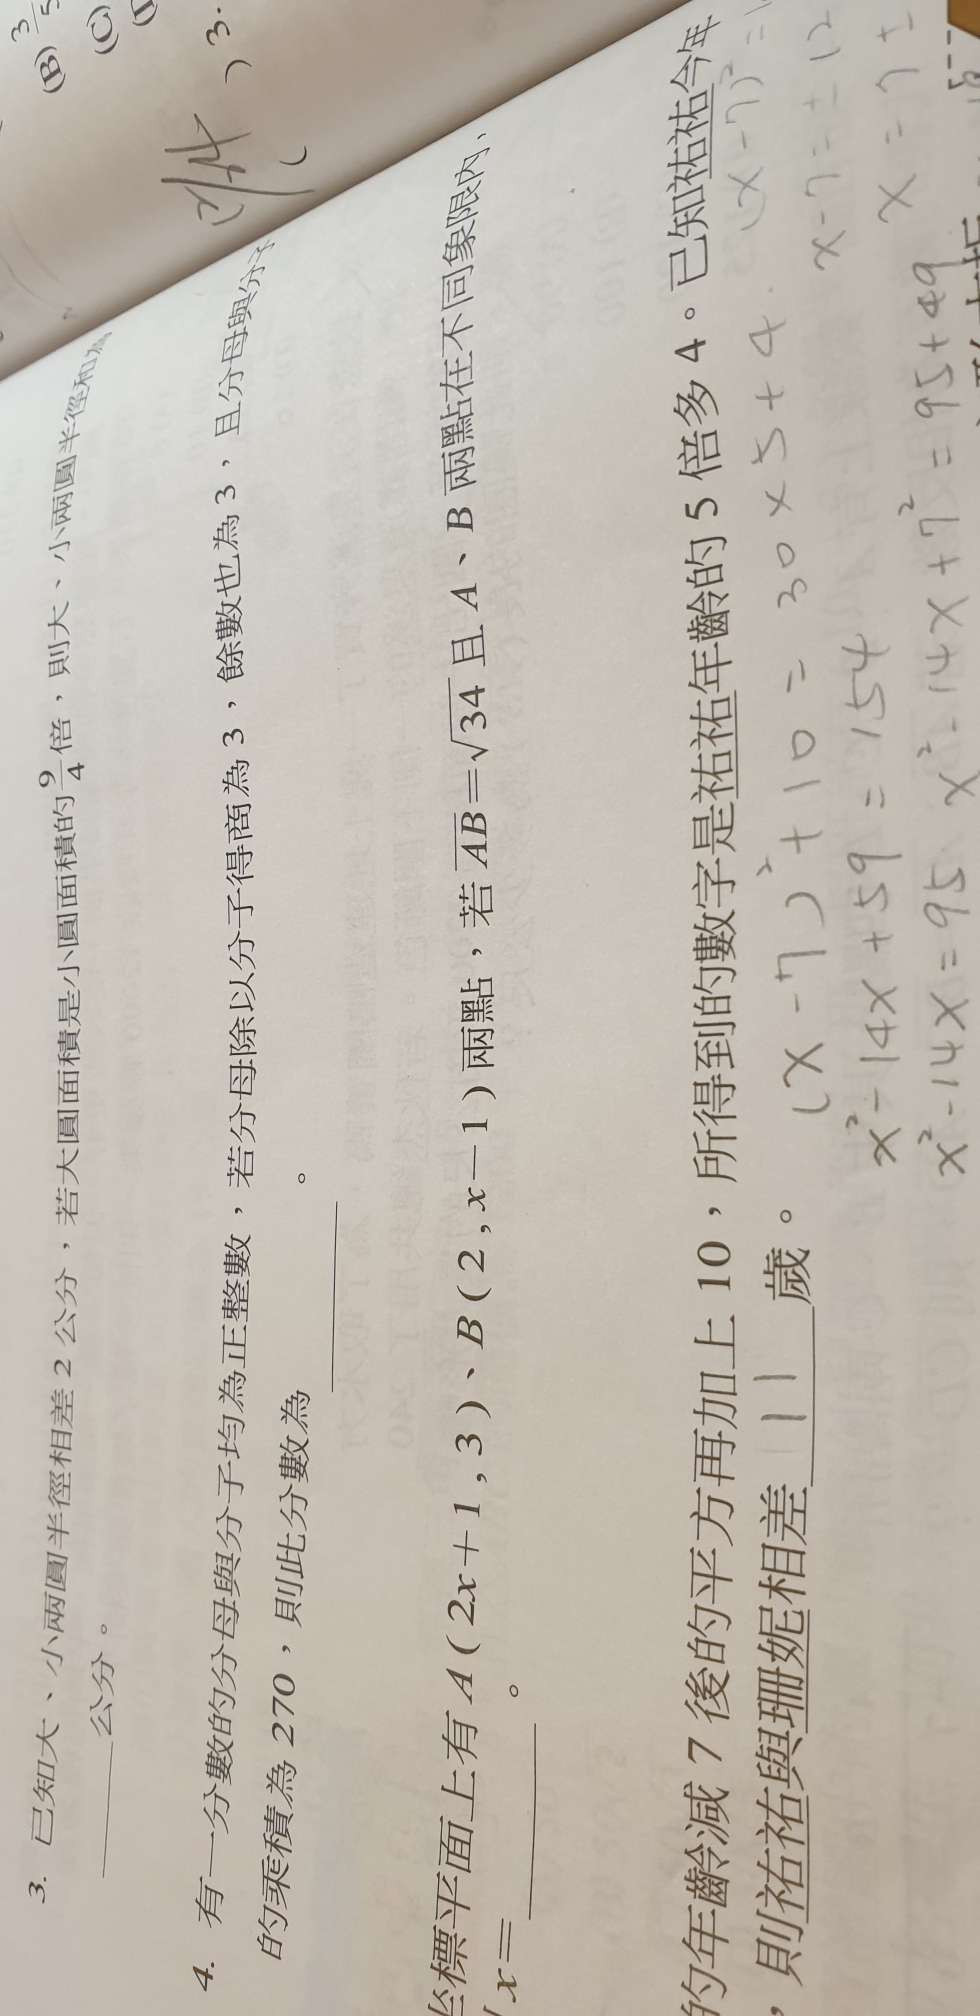 (B) 3/5
(C)
) 3.
3. 已知大、小兩圓半徑相差 2 公分，若大圓面積是小圓面積的 9/4 倍，則大、小兩圓半徑和為
____公分。
4. 有一分數的分母與分子均為正整數，若分母除以分子得商為 3，餘數也為 3，且分母與分子
的乘積為 270，則此分數為____。
坐標平面上有 A ( 2x＋1 , 3 )、B ( 2 , x－1 ) 兩點，若 AB＝√34 且 A、B 兩點在不同象限內，
x＝____。
4。已知祐祐今年
的年齡減 7 後的平方再加上 10，所得到的數字是祐祐年齡的 5 倍多
，則祐祐與珊妮相差 11 歲。
(x-7)²+10 = 30×5+4.
x²-14x+59 = 154
x²-14x = 95
x²-14x+7² = 95+49
(x-7)² =
x-7 = ±12
x = 7±